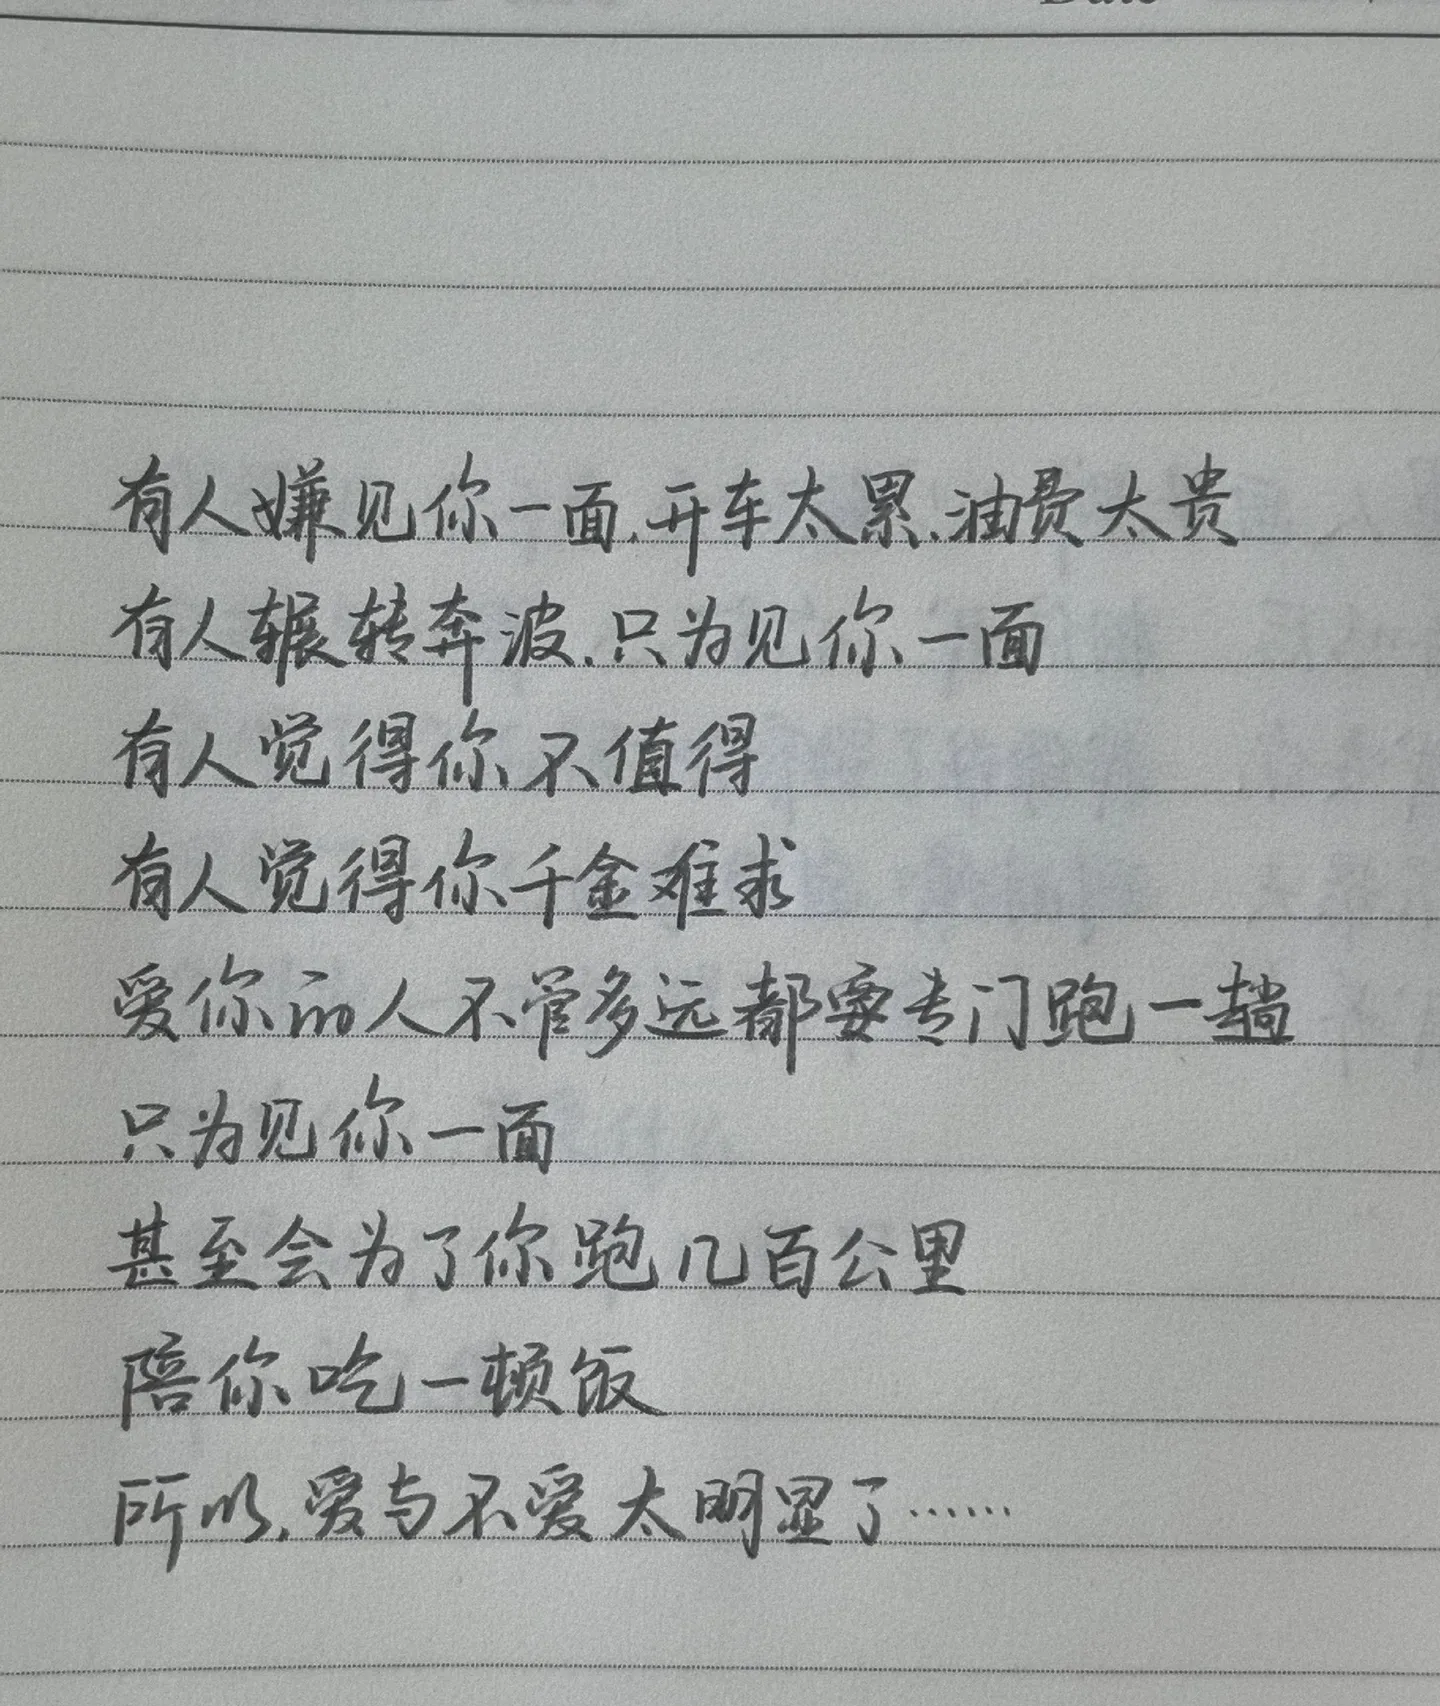 有人嫌见你一面,开车太累,油费太贵
有人辗转奔波,只为见你一面
有人觉得你不值得
有人觉得你千金难求
爱你的人不管多远都要专门跑一趟
只为见你一面
甚至会为了你跑几百公里
陪你吃一顿饭
所以,爱与不爱太明显了……